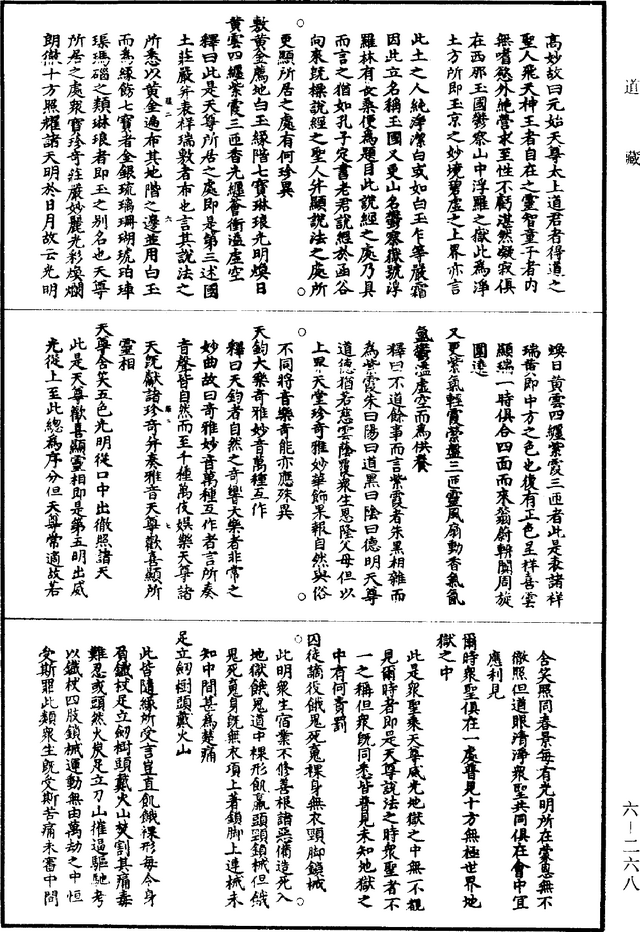 道藏
高妙故曰元始天尊太上道君者得道之
聖人飛天神王者自在之靈智童子者內
無嗜慾外絶營求至性不虧湛然凝寂俱
在西那玉國欝察山中浮羅之嶽此為淨
土方所即玉京之妙境碧虛之上界亦言
此土之人純淨潔白或如白玉乍等嚴霜
因此立名稱玉國又更山名欝察嶽號浮
羅林有長桑便為題目此說經之處乃具
而言之猶如孔子定書老君說經於函谷
向來既樑說經之聖人并顯說法之處所
更顯所居之處有何珍異
敷黃金薦地白玉緣階七寶琳琅光明煥日
黃雲四纏紫霞三匝香光纏薈衝溢虛空
釋曰此是天尊所居之處即是第三述國
土莊嚴并表祥瑞敷者布也言其說法之
所悉以黃金遍布其地階之邊並用白玉
而為緣飾七寶者金銀琉璃珊瑚琥珀硨
磲瑪碯之類琳琅者即玉之別名也天尊
所居之處衆寶珍奇莊嚴妙麗光彩煥爛
朗徹十方照耀諸天明於日月故云光明
煥日黃雲四纏紫霞三匝者此是表諸祥
瑞黃即中方之色也復有正色呈祥喜雲
顯瑞一時俱合四面而來蓊蔚輧闐周旋
圍遶
又更紫氣輕霞縈盤三匝靈風扇動香氣氤
氳欝溢虛空而為供養
釋曰不道餘事而言紫霞者朱黑相雜而
為紫霞朱曰陽曰道黑曰陰曰德明天尊
道德猶若慈雲陰覆衆生恩隆父母但以
上界天堂珍奇雅妙華飾果報自然與俗
不同將音樂奇能亦應殊異
天鈞大樂奇雅妙音萬種互作
釋曰天鈞者自然之奇響大樂者非常之
妙曲故曰奇雅妙音萬種互作者言所奏
音聲皆自然而至千種萬伎娛樂天尊諸
天既獻諸珍奇并奏雅音天尊歡喜顯所
靈相
天尊含笑五色光明從口中出徹照諸天
此是天尊歡喜顯靈相即是第五明出威
光從上至此緫為序分但天尊常適故若
含笑照同春景每有光明所在蒙恩無不
徹照但道眼清淨衆聖共同俱在會中宜
應利見
爾時衆聖俱在一處普見十方無極世界地
獄之中
此是衆聖乘天尊威光地獄之中無不覩
見爾時者即是天尊說法之時衆聖者不
一之稱但衆既同悉皆普見未知地獄之
中有何責罰
囚徒謫役餓鬼死魂裸身無衣頸脚鎖械
此明衆生宿業不修善根諸惡備造死入
地獄餓鬼道中裸形飢羸頭頸鎖械但餓
鬼死魂身既無衣項上著鎖脚上連械未
知中間甚為楚痛
足立劒樹頭戴火山
此皆隨緣所受言豈直飢餓裸形每令身
負鐵杖足立劒樹頭戴火山焚割其痛毒
難忍或頭然火炭足立刀山摧逼驅馳考
以鐵杖四肢鎖械運動無由萬劫之中恒
受斯罪此類衆生既受斯苦痛未審中間
六－二六八